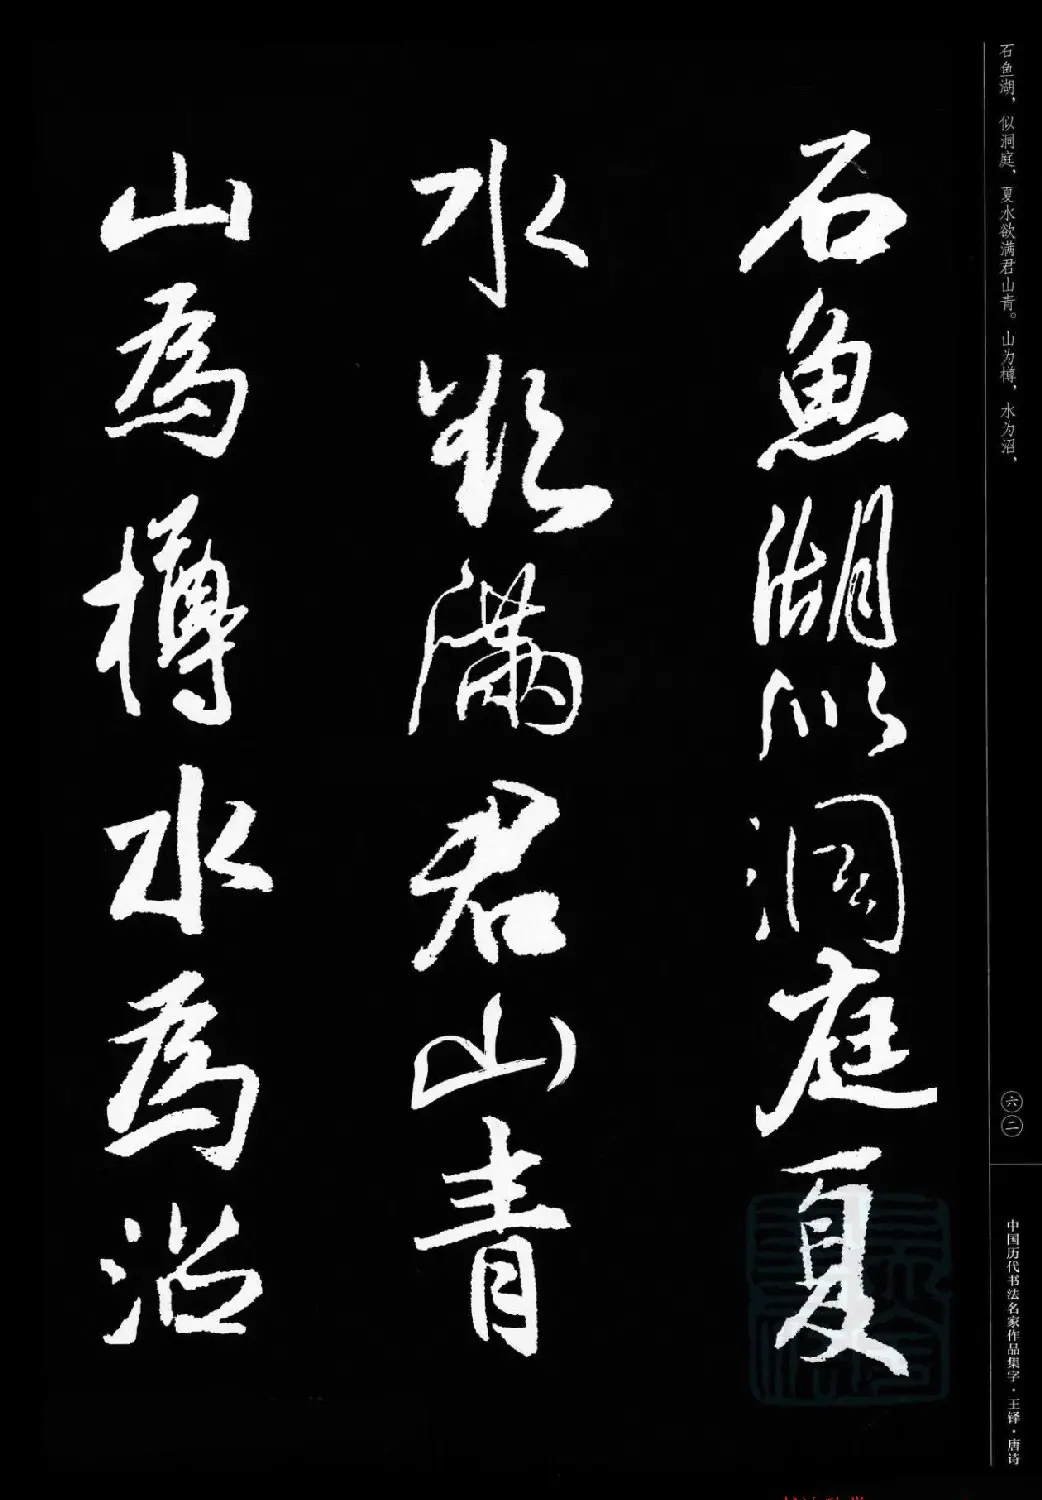 石鱼湖，似洞庭，夏水欲满君山青。山为樽，水为沼，
六二
中国历代书法名家作品集字·王铎·唐诗
石魚湖似洞庭夏
水欲滿君山青
山為樽水為沼